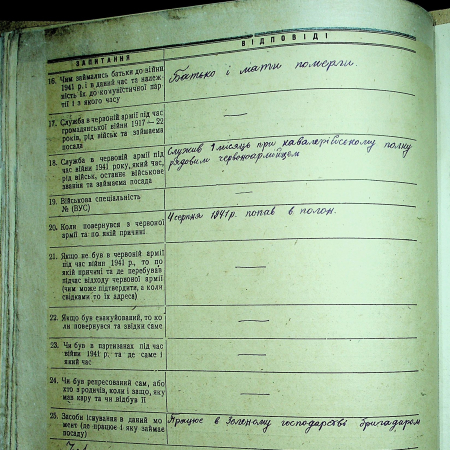 ЗАПИТАННЯ
ВІДПОВІДІ
16. Чим займались батьки до війни
1941 р. і в даний час та належ-
ність їх до комуністичної пар-
тії і з якого часу
Батько і мати померли.
17. Служба в червоній армії під час
громадянської війни 1917—22
років, рід військ та займаєма
посада
—
18. Служба в червоній армії під
час війни 1941 року, який час,
рід військ, останнє військове
звання та займаєма посада
Служив 1 місяць при кавалерійському полку
рядовим червоноармійцем
19. Військова спеціальність
№ (ВУС)
—
20. Коли повернувся з червоної
армії та по якій причині
4 серпня 1941 р. попав в полон.
21. Якщо не був в червоній армії
під час війни 1941 р., то по
якій причині та де перебував
підчас відходу червоної армії
(чим може підтвердити, а коли
свідками то їх адреса)
—
22. Якщо був евакуйований, то ко-
ли повернувся та звідки саме
—
23. Чи був в партизанах під час
війни 1941 р. та де саме і
який час
—
24. Чи був репресований сам, або
хто з родичів, коли і защо, яку
мав кару та чи відбув її
—
25. Засоби існування в даний мо-
мент (де працює і яку займає
посаду)
Працює в Зеленому господарстві бригадаром